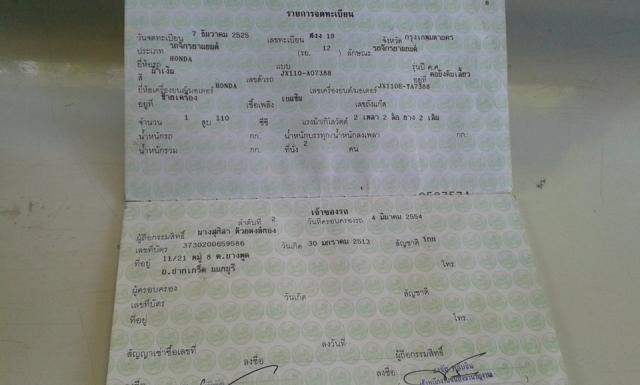 รายการจดทะเบียน
วันจดทะเบียน 7 ธันวาคม 2525 เลขทะเบียน 19 จังหวัด กรุงเทพมหานคร
ประเภท รถจักรยานยนต์ (รย. 12 ) ลักษณะ รถจักรยานยนต์
ยี่ห้อรถ HONDA แบบ รุ่นปี ค.ศ.
สี น้ำเงิน เลขตัวรถ JX110-A07388 อยู่ที่ คอบังคับเลี้ยว
ยี่ห้อเครื่องยนต์/มอเตอร์ HONDA เลขเครื่องยนต์/มอเตอร์ JX110E-TA7388
อยู่ที่ ข้างเครื่อง เชื้อเพลิง เบนซิน เลขถังแก๊ส
จำนวน 1 สูบ 110 ซีซี แรงม้า/กิโลวัตต์ 2 เพลา 2 ล้อ ยาง 2 เส้น
น้ำหนักรถ กก. น้ำหนักบรรทุก/น้ำหนักลงเพลา กก.
น้ำหนักรวม กก. ที่นั่ง 2 คน
เจ้าของรถ
ลำดับที่ 2 วันที่ครอบครองรถ 4 มีนาคม 2554
ผู้ถือกรรมสิทธิ์
เลขที่บัตร 3730200659586 วันเกิด 30 มกราคม 2513 สัญชาติ ไทย
ที่อยู่ 11/21 หมู่ 8 ต.บางพูด โทร.
อ.ปากเกร็ด นนทบุรี
ผู้ครอบครอง
เลขที่บัตร วันเกิด สัญชาติ
ที่อยู่ โทร.
สัญญาเช่าซื้อเลขที่ ลงวันที่ ผู้ถือกรรมสิทธิ์
ลงชื่อ ลงชื่อ